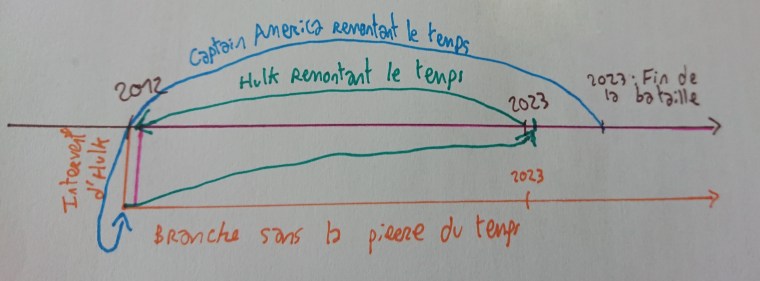 Captain America Remontant le temps
Hulk Remontant le temps
2012
2023
2023: Fin de
la bataille
Intervent°
d'Hulk
2023
Branche sans la pierre du temps